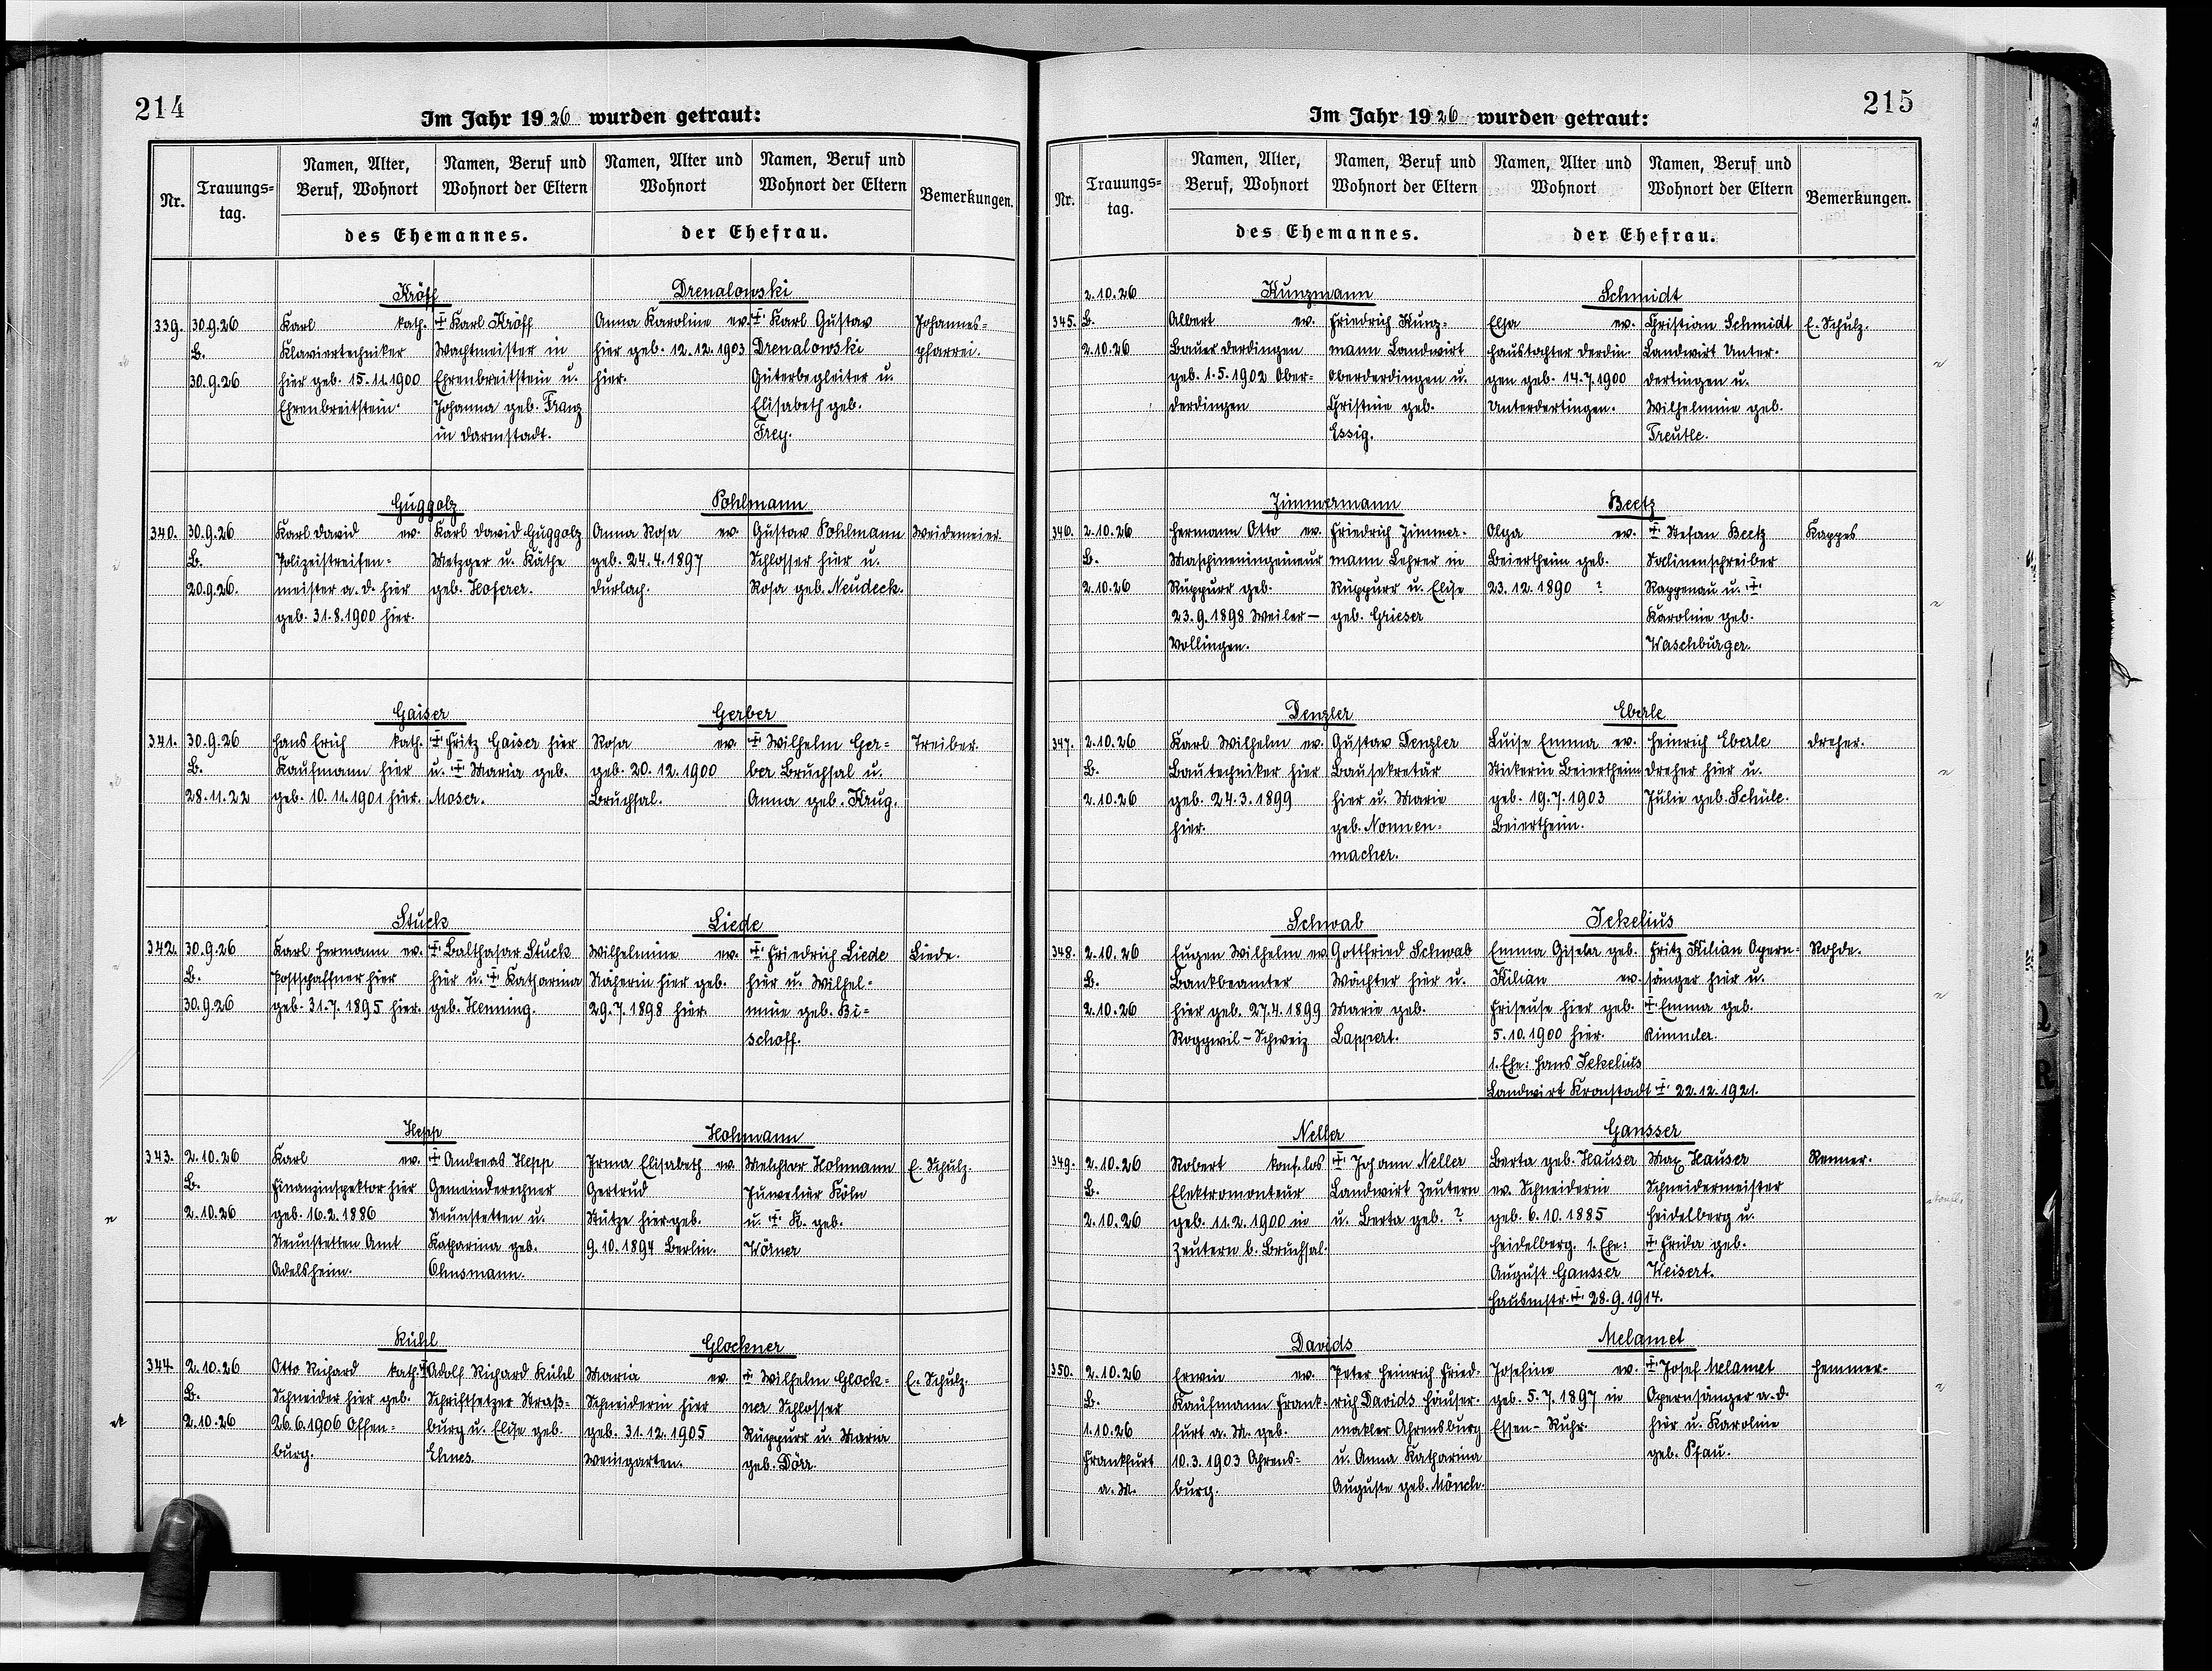 214
Im Jahr 1926 wurden getraut:
Nr.
Trauungs=
tag.
Namen, Alter,
Beruf, Wohnort
Namen, Beruf und
Wohnort der Eltern
des Ehemannes.
Namen, Alter und
Wohnort
Namen, Beruf und
Wohnort der Eltern
der Ehefrau.
Bemerkungen.
Kröff
Drenalowski
339.
30.9.26
B.
30.9.26
Karl kath.
Klaviertechniker
hier geb. 15.11.1900
Ehrenbreitstein.
‡ Karl Kröff
Wachtmeister in
Ehrenbreitstein u.
Johanna geb. Franz
in Darmstadt.
Anna Karoline ev.
hier geb. 12.12.1903
hier.
‡ Karl Gustav
Drenalowski
Güterbegleiter u.
Elisabeth geb.
Frey.
Johannes=
pfarrei.
Guggolz
Pohlmann
340.
30.9.26
B.
20.9.26.
Karl David ev.
Polizeistreifen=
meister a. D. hier
geb. 31.8.1900 hier.
Karl David Guggolz
Metzger u. Käthe
geb. Hoferer.
Anna Rosa ev.
geb. 24.4.1897
Durlach.
Gustav Pohlmann
Schlosser hier u.
Rosa geb. Neudeck.
Weidemeier.
Gaiser
Gerber
341.
30.9.26
B.
28.11.22
Hans Erich kath.
Kaufmann hier
geb. 10.11.1901 hier.
‡ Fritz Gaiser hier
u. ‡ Maria geb.
Moser.
Rosa ev.
geb. 20.12.1900
Bruchsal.
‡ Wilhelm Ger=
ber Bruchsal u.
Anna geb. Krug.
Treiber.
Stuck
Liede
342.
30.9.26
B.
30.9.26
Karl Hermann ev.
Postschaffner hier
geb. 31.7.1895 hier.
‡ Balthasar Stuck
hier u. ‡ Katharina
geb. Henning.
Wilhelmine ev.
Näherin hier geb.
29.7.1898 hier.
‡ Friedrich Liede
hier u. Wilhel=
mine geb. Bi=
schoff.
Liede.
Hepp
Hohmann
343.
2.10.26
B.
2.10.26
Karl ev.
Finanzinspektor hier
geb. 16.2.1886
Neunstetten Amt
Adelsheim.
‡ Andreas Hepp
Gemeinderechner
Neunstetten u.
Katharina geb.
Ohnsmann.
Irma Elisabeth ev.
Gertrud
Stütze hier geb.
9.10.1894 Berlin.
Melchior Hohmann
Juwelier Köln
u. ‡ K. geb.
Wörner
E. Schulz.
Kühl
Glockner
344.
2.10.26
B.
2.10.26
Otto Richard kath.
Schneider hier geb.
26.6.1906 Offen=
burg.
‡ Adolf Richard Kühl
Schriftsetzer Straß=
burg u. Elise geb.
Ehnes.
Maria ev.
Schneiderin hier
geb. 31.12.1905
Weingarten.
‡ Wilhelm Glock=
ner Schlosser
Rüppurr u. Maria
geb. Dörr.
E. Schulz.
215
Im Jahr 1926 wurden getraut:
Nr.
Trauungs=
tag.
Namen, Alter,
Beruf, Wohnort
Namen, Beruf und
Wohnort der Eltern
des Ehemannes.
Namen, Alter und
Wohnort
Namen, Beruf und
Wohnort der Eltern
der Ehefrau.
Bemerkungen.
Kunzmann
Schmidt
345.
2.10.26
B.
2.10.26
Albert ev.
Bauer Derdingen
geb. 1.5.1902 Ober=
derdingen
Friedrich Kunz=
mann Landwirt
Oberderdingen u.
Christine geb.
Essig.
Elsa ev.
Haustochter Derdin=
gen geb. 14.7.1900
Unterdertingen.
Christian Schmidt
Landwirt Unter=
dertingen u.
Wilhelmine geb.
Treutle.
E. Schulz.
Zimmermann
Beetz
346.
2.10.26
B.
2.10.26
Hermann Otto ev.
Maschineningenieur
Rüppurr geb.
23.9.1898 Weiler—
Vollingen.
Friedrich Zimmer=
mann Lehrer in
Rüppurr u. Elise
geb. Grieser
Olga ev.
Beiertheim geb.
23.12.1890 ?
‡ Stefan Beetz
Salinenschreiber
Rappenau u. ‡
Karoline geb.
Waschburger.
Kappes
Denzler
Eberle
347.
2.10.26
B.
2.10.26
Karl Wilhelm ev.
Bautechniker hier
geb. 24.3.1899
hier.
Gustav Denzler
Bausekretär
hier u. Marie
geb. Nonnen=
macher.
Luise Emma ev.
Stickerin Beiertheim
geb. 19.7.1903
Beiertheim.
Heinrich Eberle
Dreher hier u.
Julie geb. Schüle.
Dreher.
Schwab
Jekelius
348.
2.10.26
B.
2.10.26
Eugen Wilhelm ev.
Bankbeamter
hier geb. 27.4.1899
Roggwil - Schweiz
Gottfried Schwab
Wächter hier u.
Marie geb.
Lappert.
Emma Gisela geb.
Kilian ev.
Friseuse hier geb.
5.10.1900 hier.
1. Ehe: Hans Jekelius
Landwirt Kronstadt ‡ 22.12.1921.
Fritz Kilian Opern=
sänger hier u.
‡ Emma geb.
Rohde.
Neller
Gansser
349.
2.10.26
B.
2.10.26
Robert konf.los
Elektromonteur
geb. 11.2.1900 in
Zeutern b. Bruchsal.
‡ Johann Neller
Landwirt Zeutern
u. Berta geb. ?
Berta geb. Hauser
ev. Schneiderin
geb. 6.10.1885
Heidelberg. 1. Ehe:
August Gansser
Hausmstr. ‡ 28.9.1914.
Max Hauser
Schneidermeister
Heidelberg u.
‡ Frida geb.
Weisert.
Renner.
Davids
Melamet
350.
2.10.26
B.
1.10.26
Frankfurt
a. M.
Erwin ev.
Kaufmann Frank=
furt a. M. geb.
10.3.1903 Ahrens=
burg.
Peter Heinrich Fried=
rich Davids Häuser=
makler Ahrensburg
u. Anna Katharina
Auguste geb. Mönch.
Josefine ev.
geb. 5.7.1897 in
Essen - Ruhr.
‡ Josef Melamet
Opernsänger a. D.
hier u. Karoline
geb. Pfau.
Hemmer.